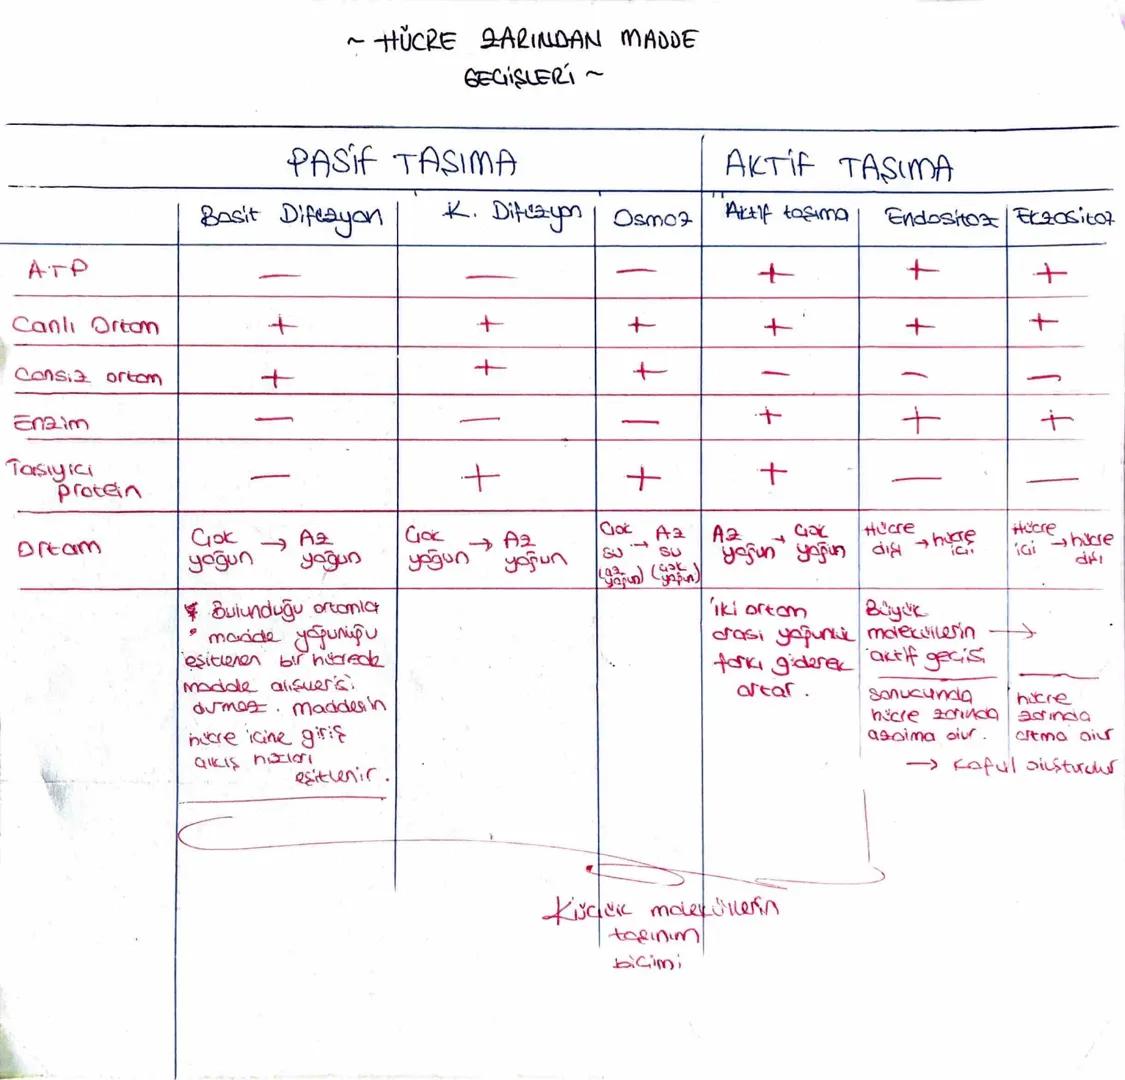 ~ HÜCRE ZARINDAN MADDE
GEÇİŞLERİ ~
PASİF TAŞIMA AKTİF TAŞIMA
Basit Difüzyon K. Difüzyon Osmoz Aktif taşıma Endositoz Ekzositoz
ATP — — — + + +
Canlı Ortam + + + + + +
Cansız ortam + + + — — —
Enzim — — — + + +
Taşıyıcı
protein — + + + — —
Ortam
Çok → Az
yoğun yoğun
Çok → Az
yoğun yoğun
Çok → Az
su su
(az yoğun) (çok yoğun)
Az → Çok
yoğun yoğun
Hücre
dışı → hücre
içi
Hücre
içi → hücre
dışı
* Bulunduğu ortamla
madde yoğunluğu
eşitlenen bir hücrede
madde alışverişi
durmaz. maddesin
hücre içine giriş
çıkış hızları
eşitlenir.
İki ortam
arası yoğunluk
farkı giderek
artar.
Büyük
moleküllerin →
aktif geçişi
sonucunda
hücre zarında
azalma olur.
hücre
zarında
artma olur
→ koful oluşturulur
Küçük moleküllerin
taşınım
biçimi